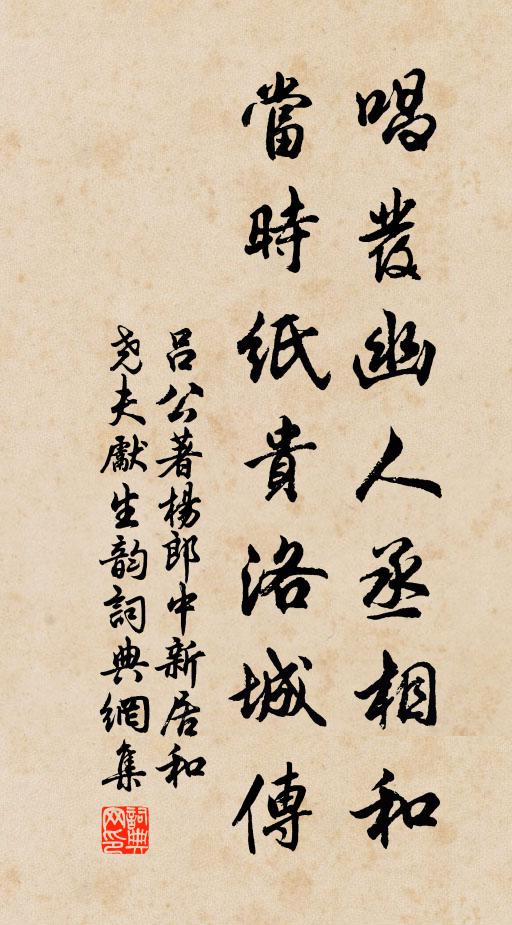 唱發幽人丞相和
當時紙貴洛城傳
吕公著楊郎中新居和
堯夫獻生韵詞典網集
詞典网印